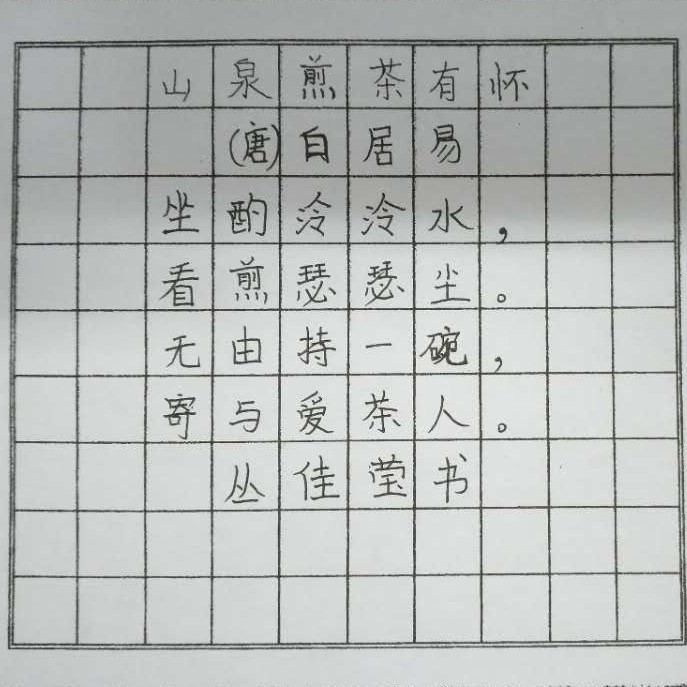 山泉煎茶有怀
(唐)白居易
坐酌泠泠水，
看煎瑟瑟尘。
无由持一碗，
寄与爱茶人。
丛佳莹书